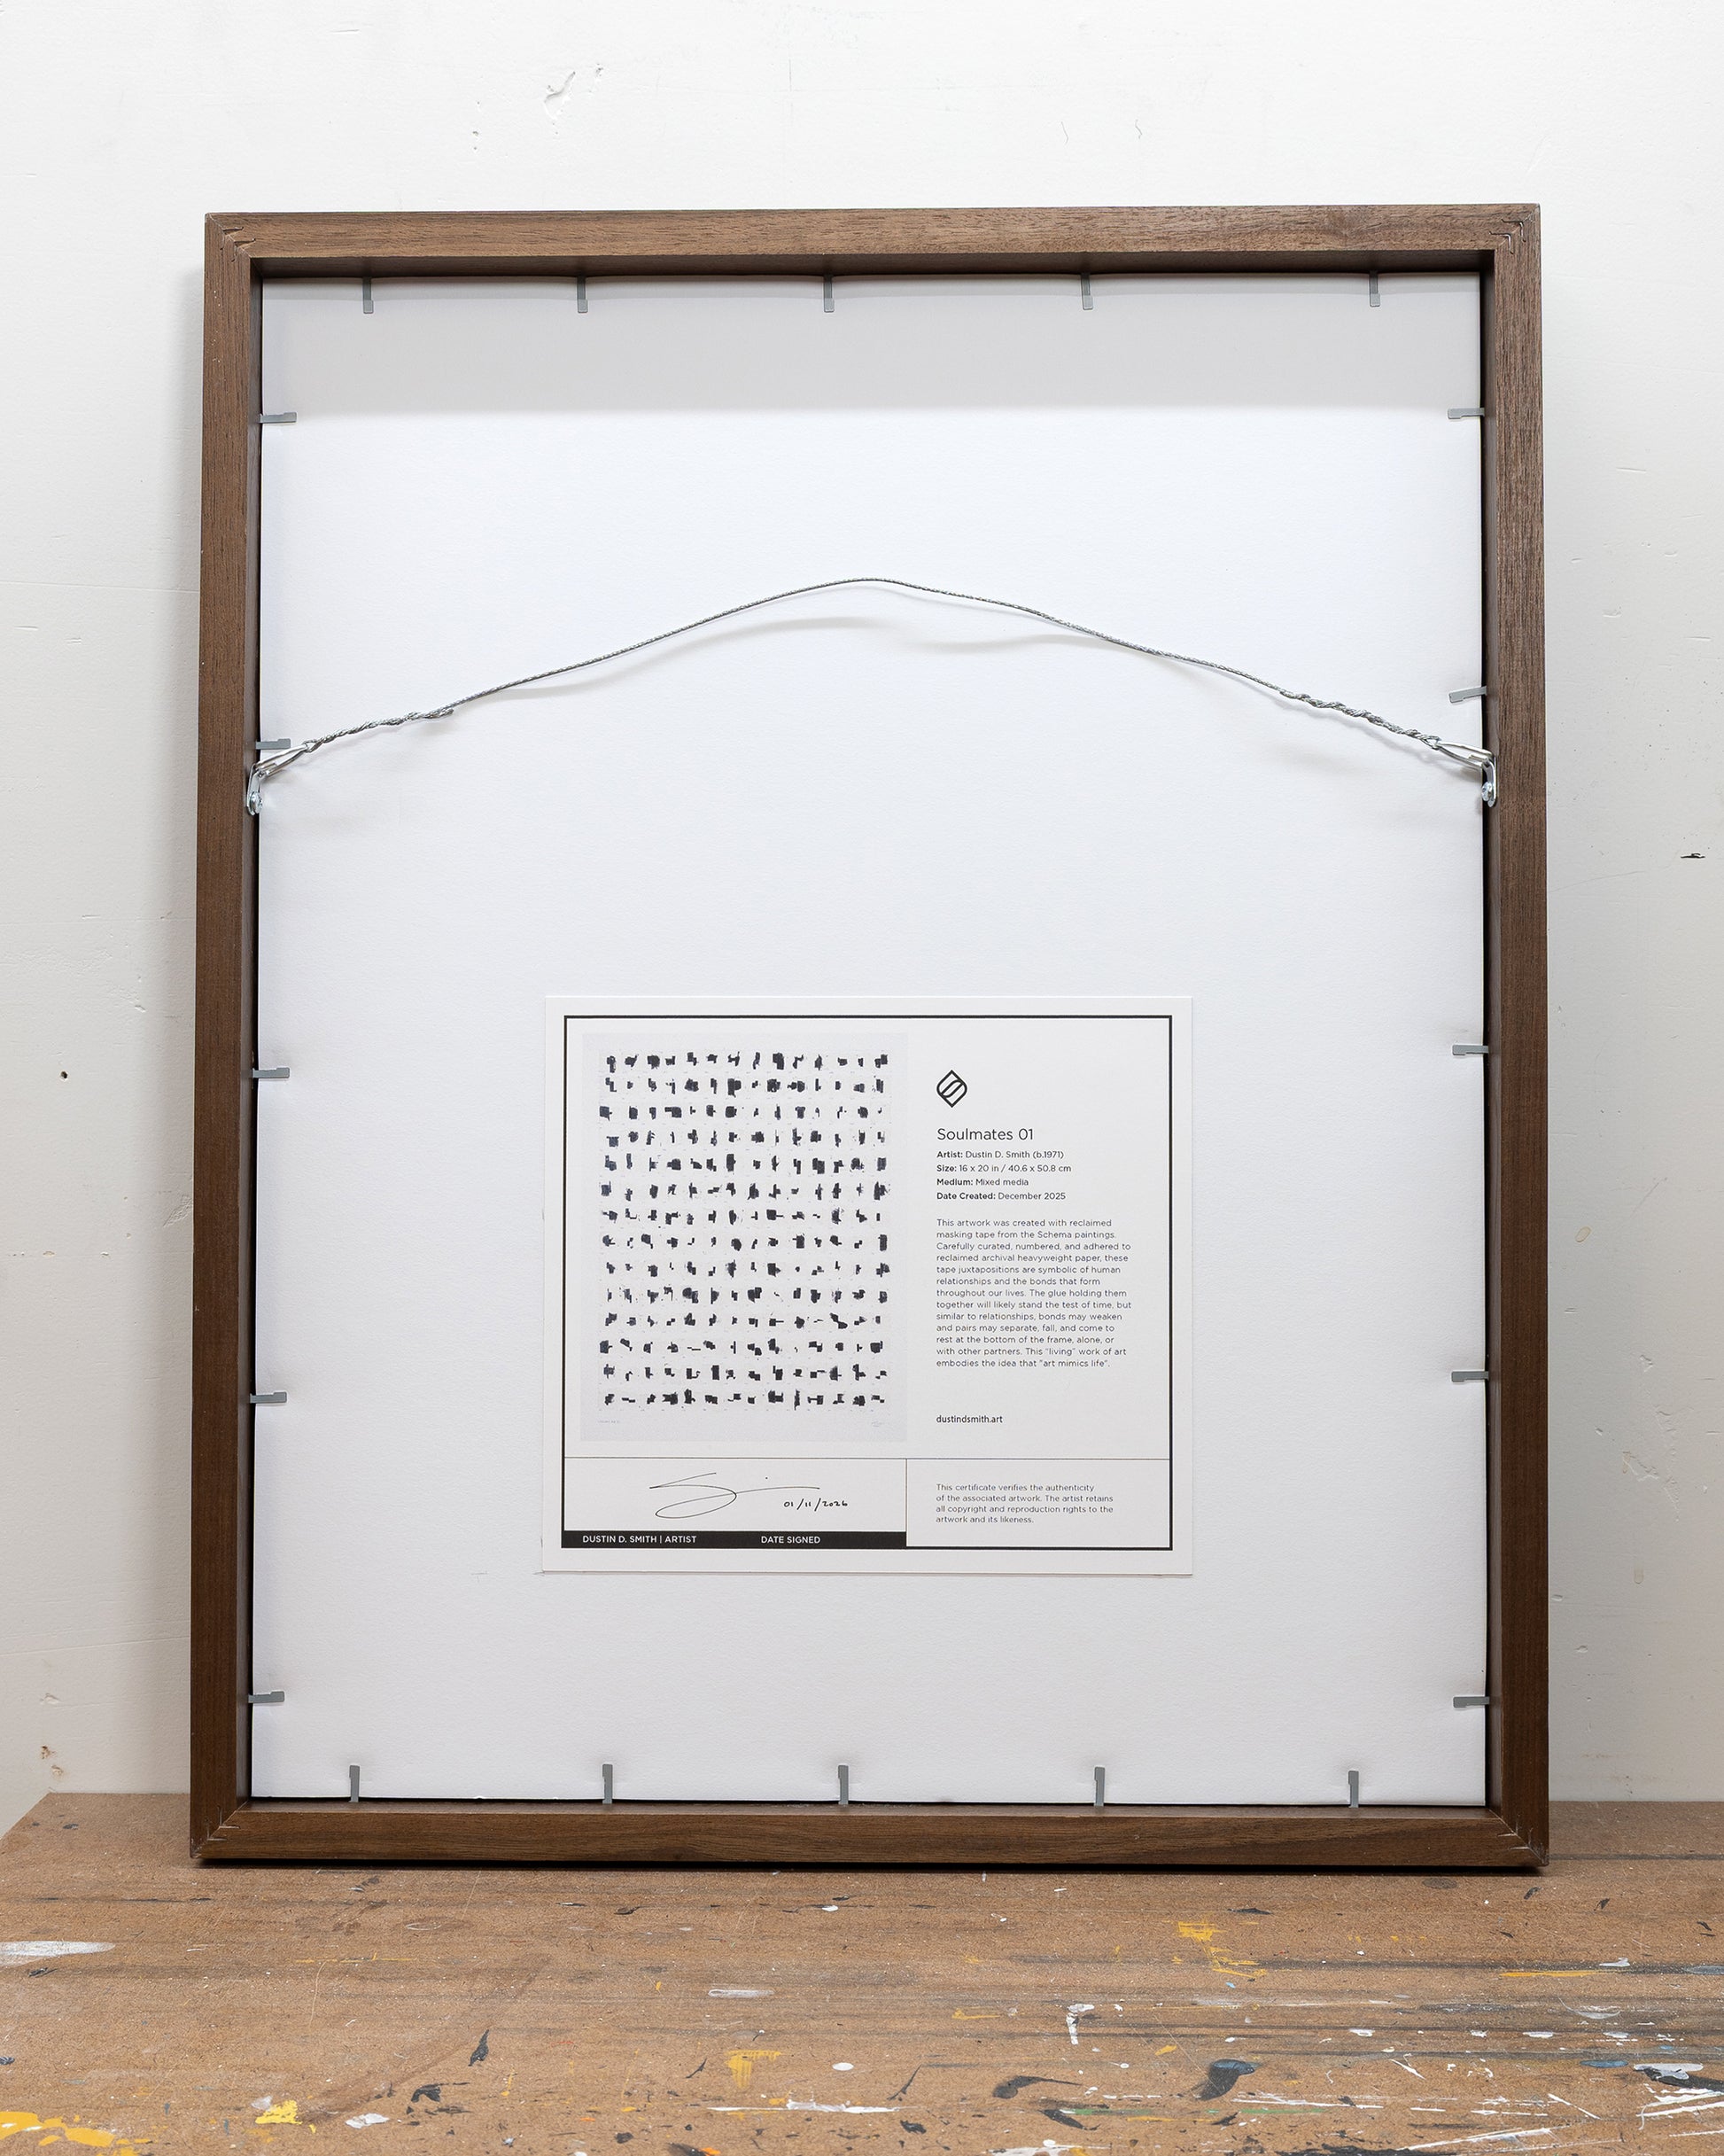 Soulmates 01
Artist: Dustin D. Smith (b.1971)
Size: 16 x 20 in / 40.6 x 50.8 cm
Medium: Mixed media
Date Created: December 2025
This artwork was created with reclaimed
masking tape from the Schema paintings.
Carefully curated, numbered, and adhered to
reclaimed archival heavyweight paper, these
tape juxtapositions are symbolic of human
relationships and the bonds that form
throughout our lives. The glue holding them
together will likely stand the test of time, but
similar to relationships, bonds may weaken
and pairs may separate, fall, and come to
rest at the bottom of the frame, alone, or
with other partners. This "living" work of art
embodies the idea that "art mimics life".
dustindsmith.art
01/11/2026
DUSTIN D. SMITH | ARTIST DATE SIGNED
This certificate verifies the authenticity
of the associated artwork. The artist retains
all copyright and reproduction rights to the
artwork and its likeness.